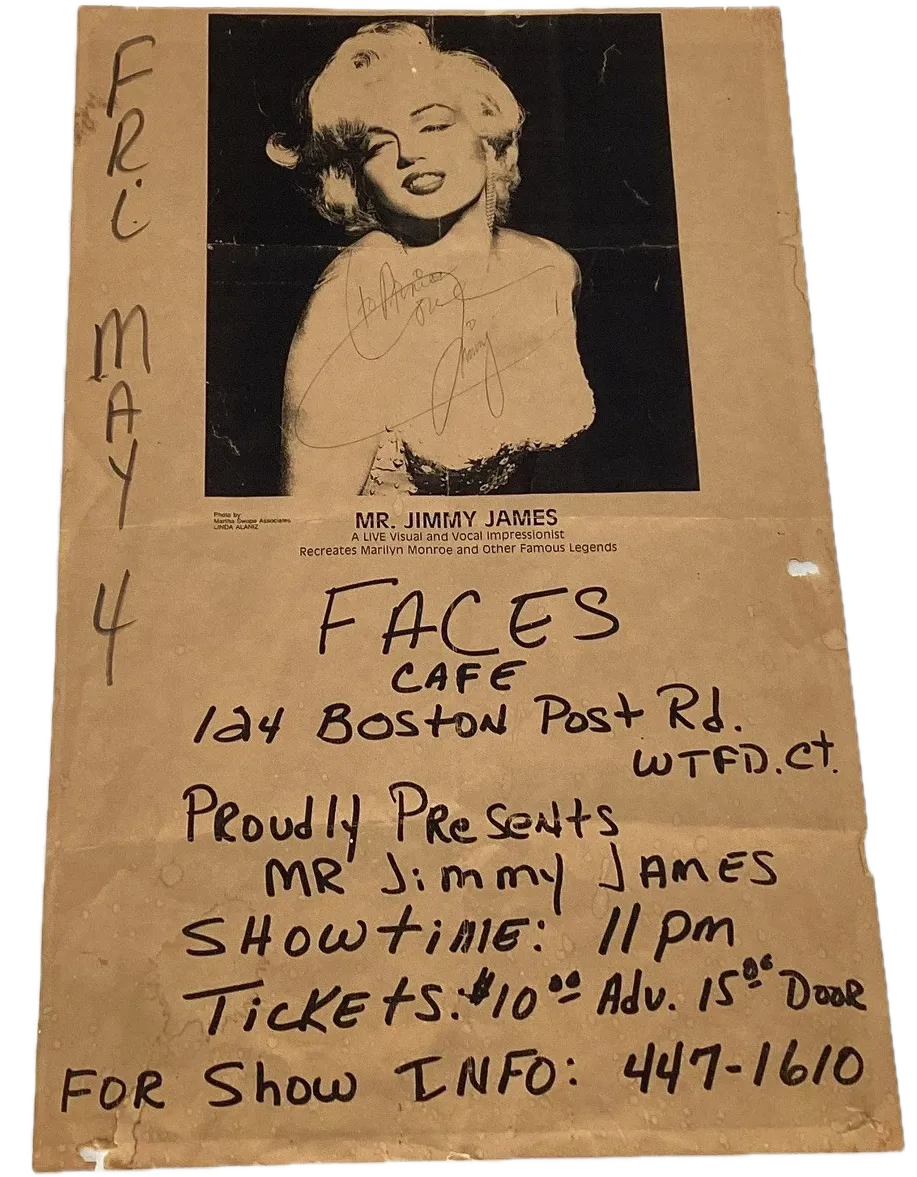 FRI MAY 4
To
Love
Jimmy
Photo by:
Martha Swope Associates
LINDA ALANIZ
MR. JIMMY JAMES
A LIVE Visual and Vocal Impressionist
Recreates Marilyn Monroe and Other Famous Legends
FACES
CAFE
124 BOSTON POST Rd.
WTFD. Ct.
PROUDLY PRESENTS
MR JIMMY JAMES
SHOWTIME: 11 pm
TICKETS: $10.00 Adv. 15.00 DOOR
FOR SHOW INFO: 447-1610